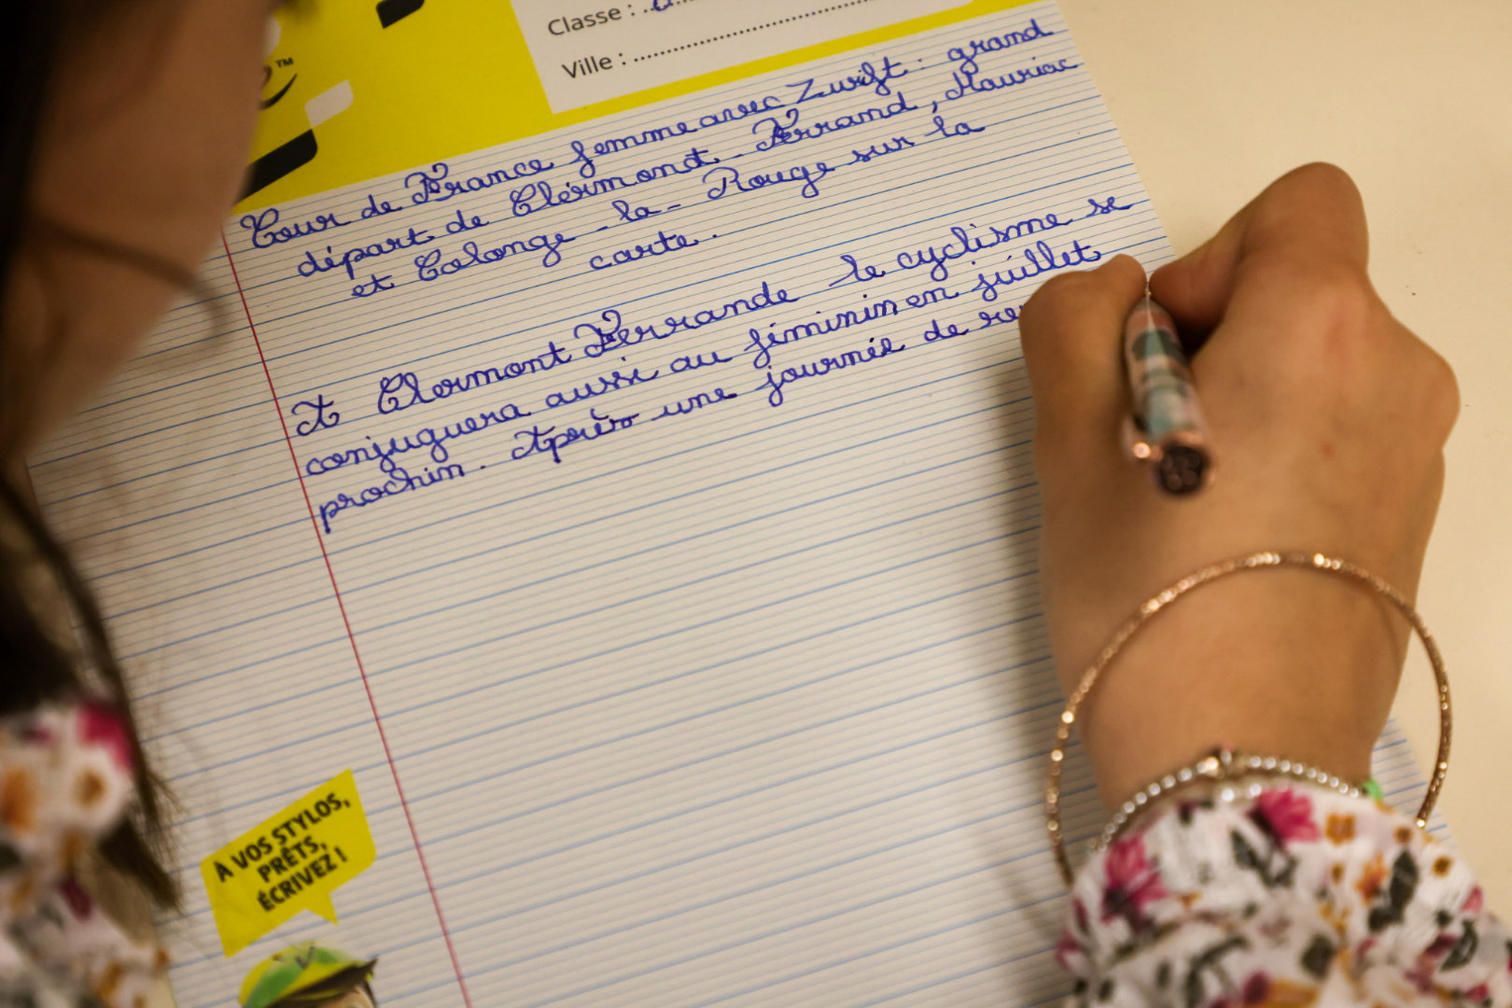 Classe :
Ville :
Tour de France femme avec Zwift : grand
départ de Clérmont. Ferrand, Mauriac
et Colonge - la - Rouge sur la
carte.
A Clermont Ferrande le cyclisme se
conjuguera aussi au féminin en juillet
prochin. Après une journée de
À VOS STYLOS,
PRÊTS,
ÉCRIVEZ !